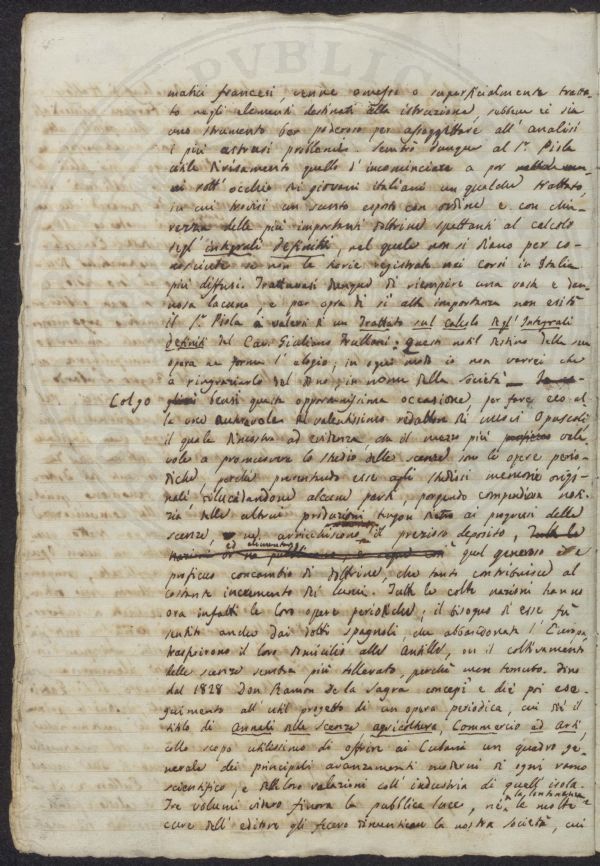 matici francesi, venne omesso o superficialmente tratta-
to negli elementi destinati alla istruzione, sebbene ei sia
uno strumento ben poderoso per assoggettare all' analisi
i più astrusi problemi. Sembrò dunque al S.r Piola
utile divisamento quello d' incominciare a por
sott' occhio dei giovani italiani un qualche trattato,
in cui trovisi un sunto esposto con ordine e con chia-
rezza delle più importanti dottrine spettanti al calcolo
degl' integrali definiti, nel quale non si danno per co-
nosciute se non le teorie registrate nei corsi in Italia
più diffusi. Trattavasi dunque di riempire una vasta e dan-
nosa lacuna, e per opra di sì alta importanza non esitò
il S.r Piola a valersi di un Trattato sul calcolo degl' Integrali
definiti del Cav. Giuliano Frullani: questo nobil destino della sua
opera ne forma l' elogio; in ogni modo io non vorrei che
a ringraziarlo del dono, in nome della società
Colgo bensì questa opportunissima occasione, per fare eco al-
la voce autorevole del valentissimo redattore di questi Opuscoli
il quale dimostra ad evidenza che il mezzo più vale-
vole a promuovere lo studio delle scienze son le opere perio-
diche, perché presentando esse agli studiosi memorie origi-
nali, dilucidandone alcune parti, porgendo compendiose noti-
zie delle altrui produzioni, tengon dietro ai progressi delle
scienze, ne arricchiscono il prezioso deposito,
ed alimentano quel generoso e
proficuo concambio di dottrine, che tanto contribuisce al
costante incremento dei lumi. Tutte le colte nazioni hanno
ora infatti le loro opere periodiche; il bisogno di esse fu
sentito anche dai dotti spagnoli, che abbandonata l' Europa
trasferirono il loro domicilio alle Antille, ove il coltivamento
delle scienze sembra più tollerato, perchè men temuto. Fino
dal 1828 Don Ramon de la Sagra concepì e diè poi ese-
guimento all' util progetto di un opera periodica, cui diè il
titolo di Annali delle scienze, agricoltura, Commercio ed Arti,
collo scopo utilissimo di offrire ai Cubani un quadro ge-
nerale dei principali avanzamenti moderni di ogni ramo
scientifico, e delle loro relazioni coll' industria di quell' isola.
Tre volumi videro finora la pubblica luce, nè la lontananza e le molte
cure dell' editore gli fecero dimenticare la nostra società, cui